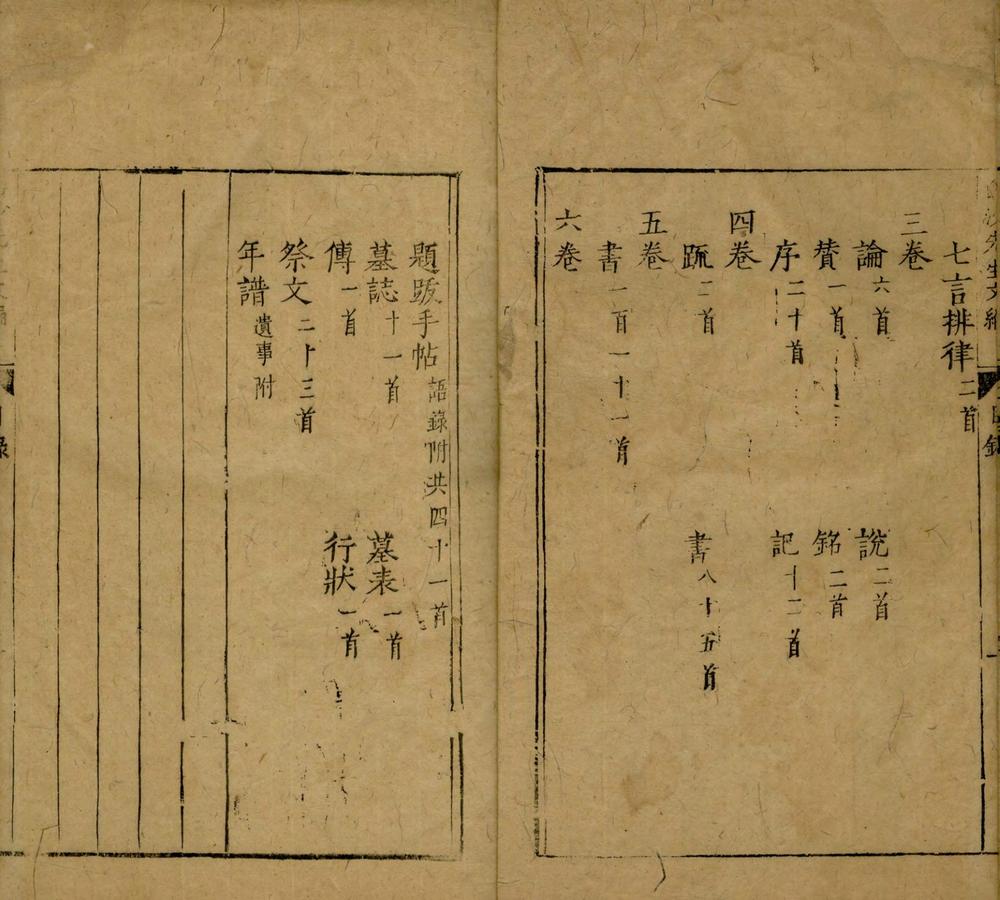 七言排律二首
三巻
論六首 說二首
賛一首 銘二首
序二十首 記十二首
四巻
䟽二首 書八十五首
五巻
書一百一十一首
六巻
題跋手帖語録附共四十一首
墓誌十一首 墓表一首
傳一首 行狀一首
祭文二十三首
年譜遺事附